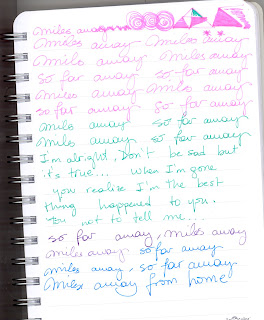 miles away
miles away miles away
miles away miles away
so far away so far away
miles away miles away
so far away so far away
miles away so far away
miles away so far away
I'm alright, Don't be sad but
it's true... when I'm gone
you realize I'm the best
thing happened to you.
not to tell me...
so far away, miles away
miles away so far away
miles away, so far away.
Miles away from home